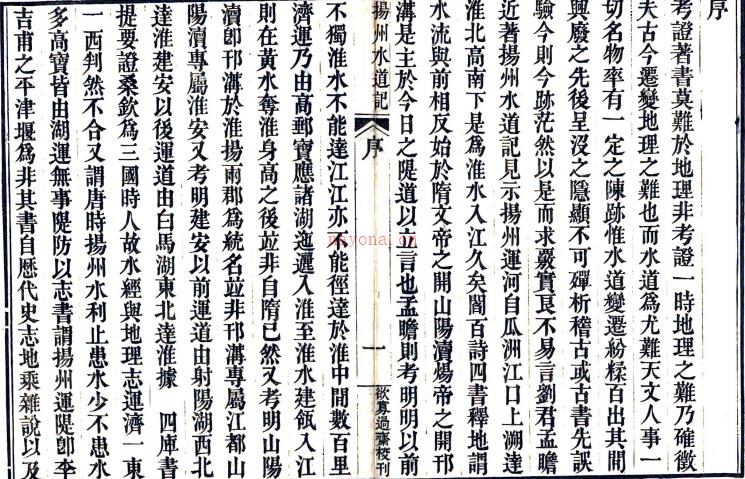 序
考證著書莫難於地理非考證一時地理之難乃確徵
夫古今遷變地理之難也而水道爲尤難天文人事一
切名物率有一定之陳跡惟水道變遷紛糅百出其間
興廢之先後呈沒之隱顯不可殫析稽古或古書先誤
驗今則今跡茫然以是而求覈實艮不易言劉君孟瞻
近著揚州水道記見示揚州運河自瓜洲江口上溯達
淮北高南下是爲淮水入江久矣閻百詩四書釋地謂
水流與前相反始於隋文帝之開山陽瀆煬帝之開邗
溝是主於今日之隄道以立言也孟瞻則考明明以前
揚州水道記
序
一
欲寡過齋校刊
不獨淮水不能達江江亦不能徑達於淮中間數百里
濟運乃由高郵寶應諸湖迤邐入淮至淮水建瓴入江
則在黃水奪淮身高之後並非自隋已然又考明山陽
瀆卽邗溝於淮揚兩郡爲統名並非邗溝專屬江都山
陽瀆專屬淮安又考明建安以前運道由射陽湖西北
達淮建安以後運道由白馬湖東北達淮據 四庫書
提要證桑欽爲三國時人故水經與地理志運濟一東
一西判然不合又謂唐時揚州水利止患水少不患水
多高寶皆由湖運無事隄防以志書謂揚州運隄卽李
吉甫之平津堰爲非其書自歷代史志地乘雜說以及
nayona.cn